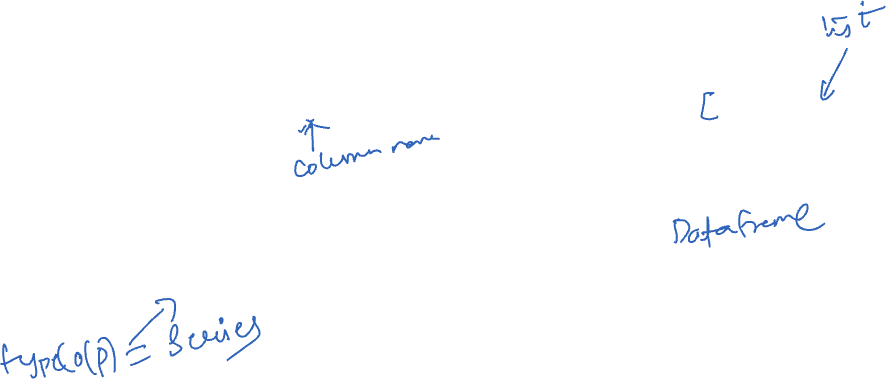 list
[
column name
DataFrame
type(o/p) = Series